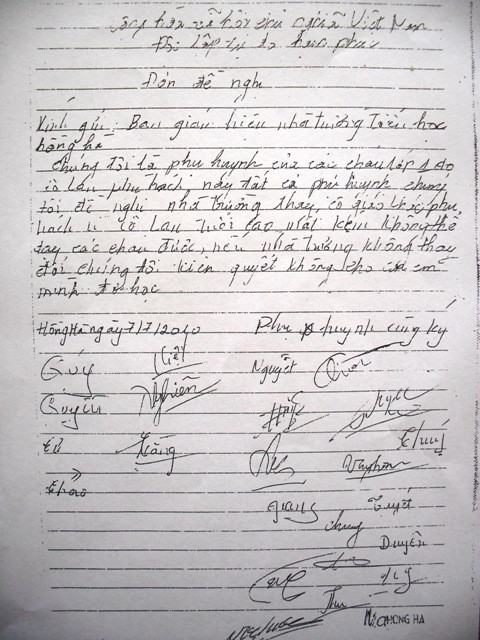 cộng hòa xã hội chủ nghĩa Việt Nam
Độc lập tự do hạnh phúc
Đơn đề nghị
Kính gửi: Ban giám hiệu nhà tường tiểu học
hồng hà
chúng tôi là phụ huynh của các cháu lớp 1 do
cô lan phụ trách, nay tất cả phụ huynh chúng
tôi đề nghị nhà trường thay cô giáo khác phụ
trách vì cô Lan tuổi cao mắt kém không thể
dạy các cháu được, nếu nhà tường không thay
đổi chúng tôi kiên quyết không cho con em
mình đi học
Hồng Hà ngày 7/7/2010 Phụ huynh cùng ký
Qúy Kiết Nguyệt
Quyền Nghiên
Thúy
Hằng
Thao
giang Tuyết
chung
Duyên
Thu
HONG HA